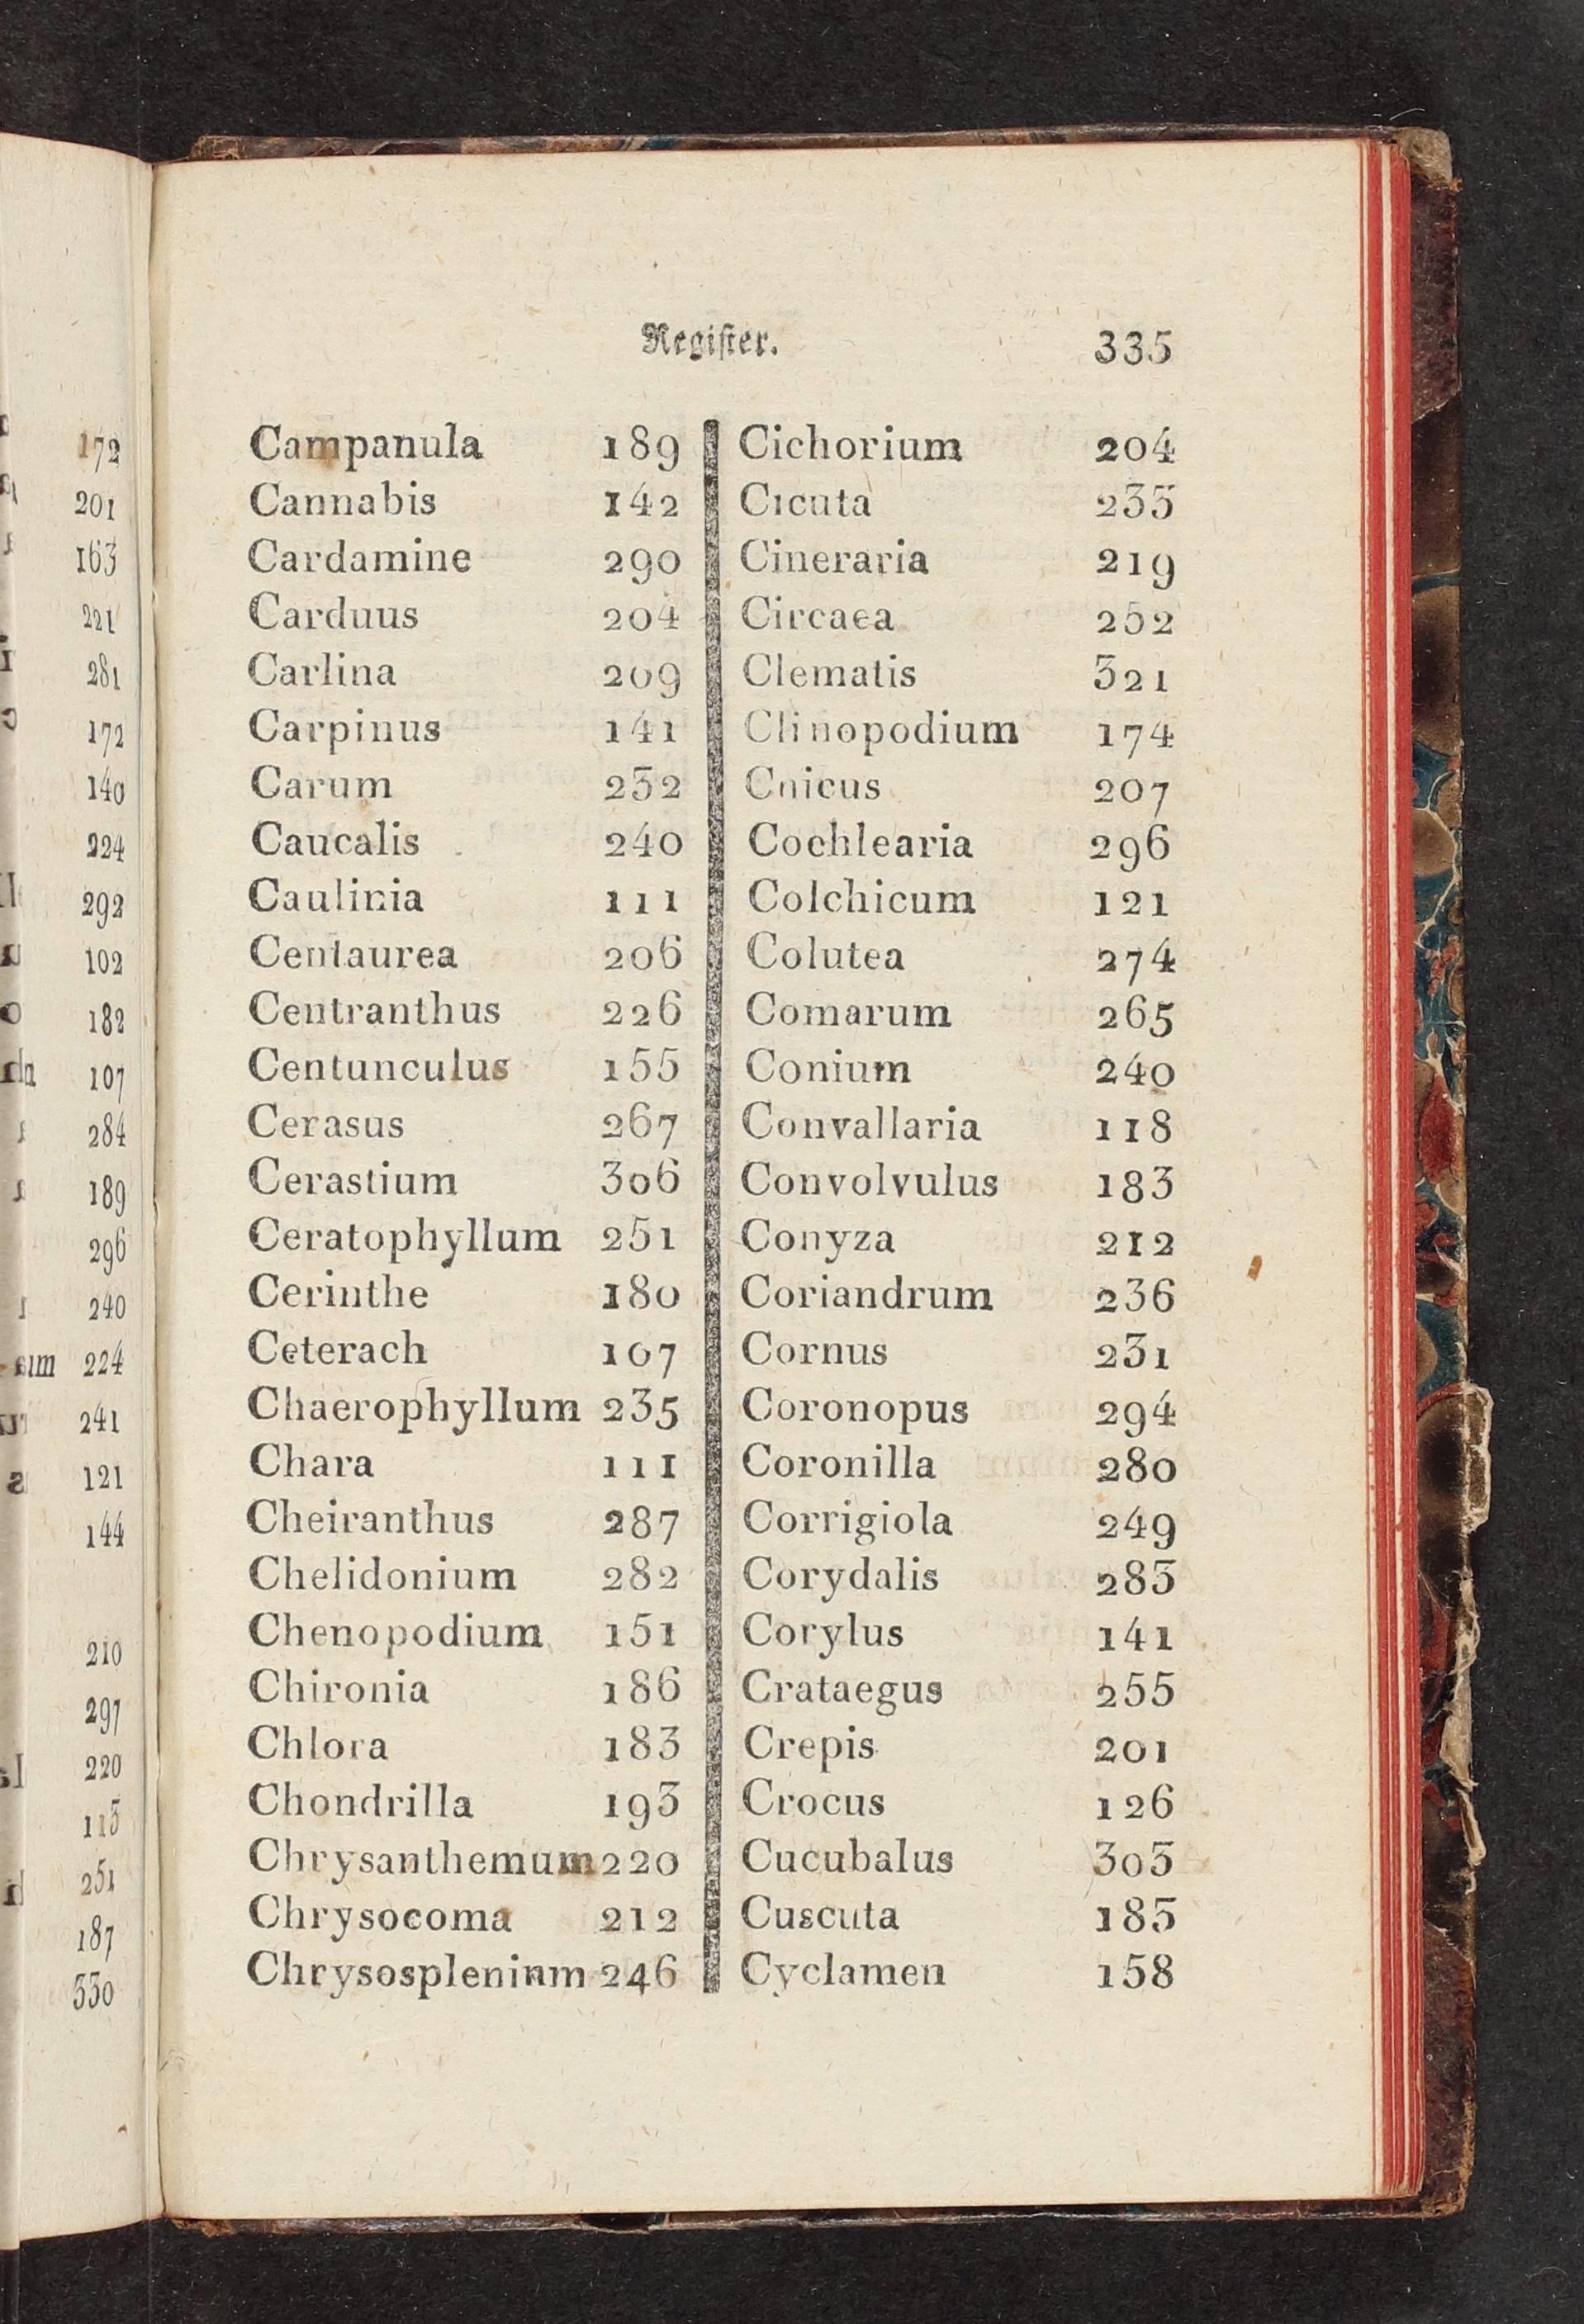 172
201
163
221
281
172
140
224
292
102
182
107
284
189
296
240
224
241
121
144
210
297
220
113
251
187
330
Register. 335
Campanula 189
Cannabis 142
Cardamine 290
Carduus 204
Carlina 209
Carpinus 141
Carum 232
Caucalis 240
Caulinia 111
Centaurea 206
Centranthus 226
Centunculus 155
Cerasus 267
Cerastium 306
Ceratophyllum 251
Cerinthe 180
Ceterach 107
Chaerophyllum 235
Chara 111
Cheiranthus 287
Chelidonium 282
Chenopodium 151
Chironia 186
Chlora 183
Chondrilla 193
Chrysanthemum 220
Chrysocoma 212
Chrysosplenium 246
Cichorium 204
Cicuta 233
Cineraria 219
Circaea 252
Clematis 321
Clinopodium 174
Cnicus 207
Cochlearia 296
Colchicum 121
Colutea 274
Comarum 265
Conium 240
Convallaria 118
Convolvulus 183
Conyza 212
Coriandrum 236
Cornus 231
Coronopus 294
Coronilla 280
Corrigiola 249
Corydalis 283
Corylus 141
Crataegus 255
Crepis 201
Crocus 126
Cucubalus 303
Cuscuta 185
Cyclamen 158